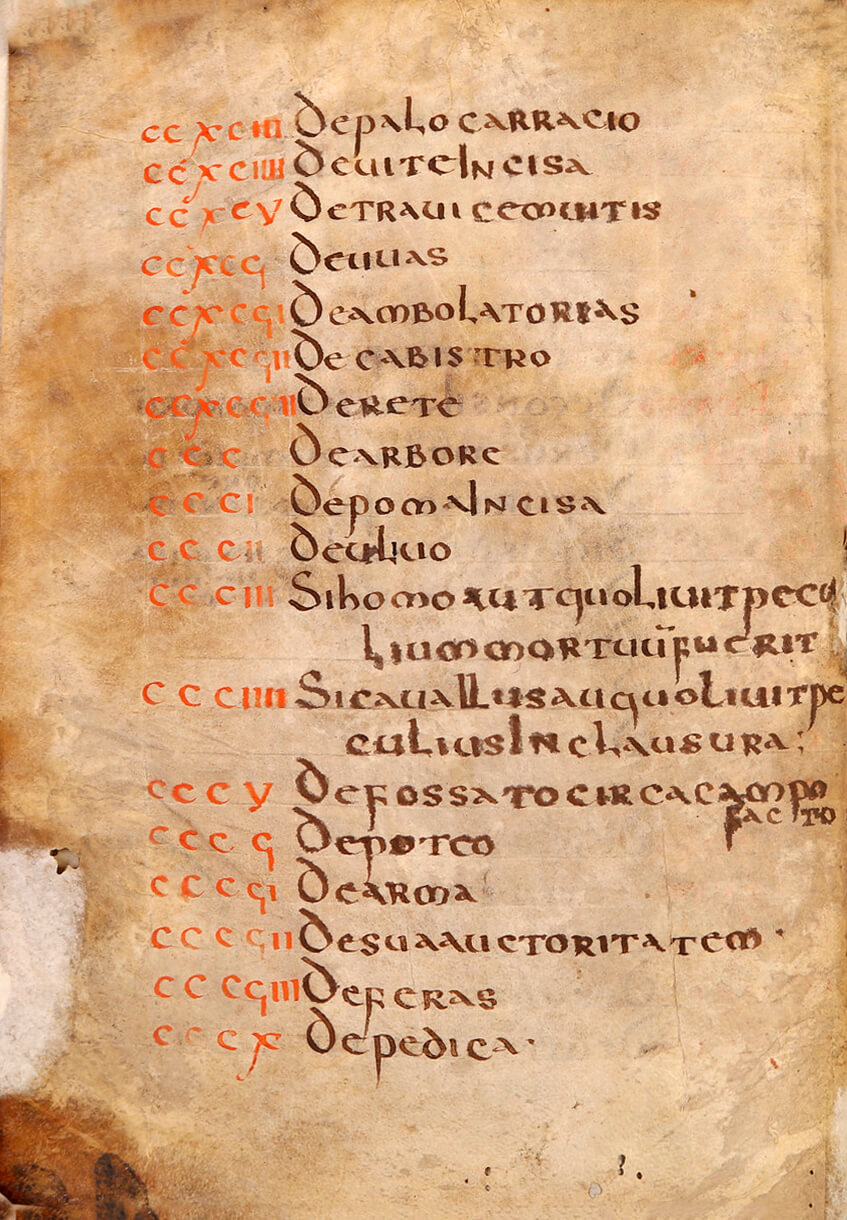 ccxciii De palo carracio
ccxciiii De uite Incisa
ccxcv De traui cemuitis
ccxcϛ De uuas
ccxcϛi De ambolatorias
ccxcϛii De cabistro
ccxcϛiii De rete
ccc De arbore
ccci De poma Incisa
cccii De uliuo
ccciii Si homo aut quoliuit pecu
lium mortuũ fuerit
ccciiii Si cauallus au quoliuit pe
culius In clausura;
cccv De fossato circa campo
facto
cccϛ De poteo
cccϛi De arma
cccϛii De sua auctoritatem·
cccϛiii De feras
cccx De pedica·